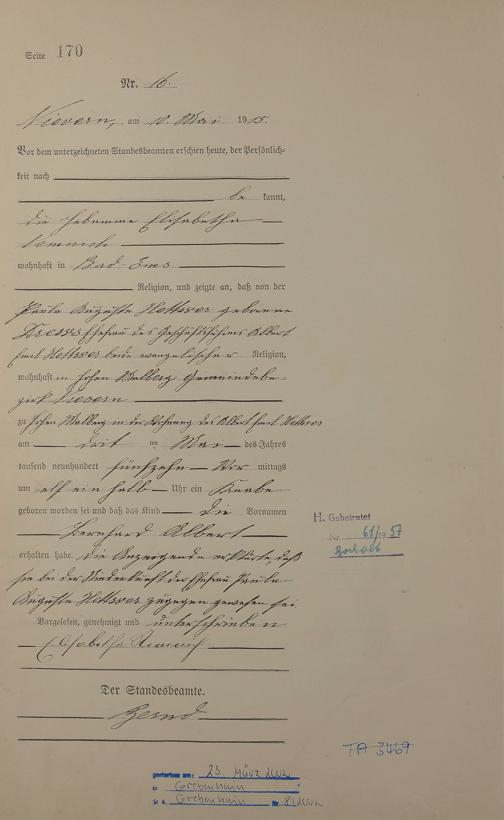 Seite 170
Nr. 16.
Nievern, am 10. Mai 1915.
Vor dem unterzeichneten Standesbeamten erschien heute, der Persönlich-
keit nach
be kannt,
die Hebamme Elisabetha
wohnhaft in Bad Ems
Religion, und zeigte an, daß von der
Paula Auguste geborene
Ehefrau des Geschäftsführers Albert
Emil beide evangelischer Religion,
wohnhaft in hohen Malberg Gemeindebe-
zirk Nievern
zu hohen Malberg in der Wohnung des Albert Emil
am im Mai des Jahres
tausend neunhundert fünfzehn Vor mittags
um elf ein halb Uhr ein Knabe
geboren worden sei und daß das Kind die Vornamen
Bernhard Albert
erhalten habe. Die Anzeigende erklärte, daß
sie bei der Niederkunft der Ehefrau Paula
Auguste zugegen gewesen sei.
Vorgelesen, genehmigt und unterschrieben
Elisabetha
Der Standesbeamte.
H. Geheiratet
Nr. 61/1957
Bocholt
TA 3469
gestorben am: 23. März 2002
in Grebenhain
St A. Grebenhain Nr. 8/2002